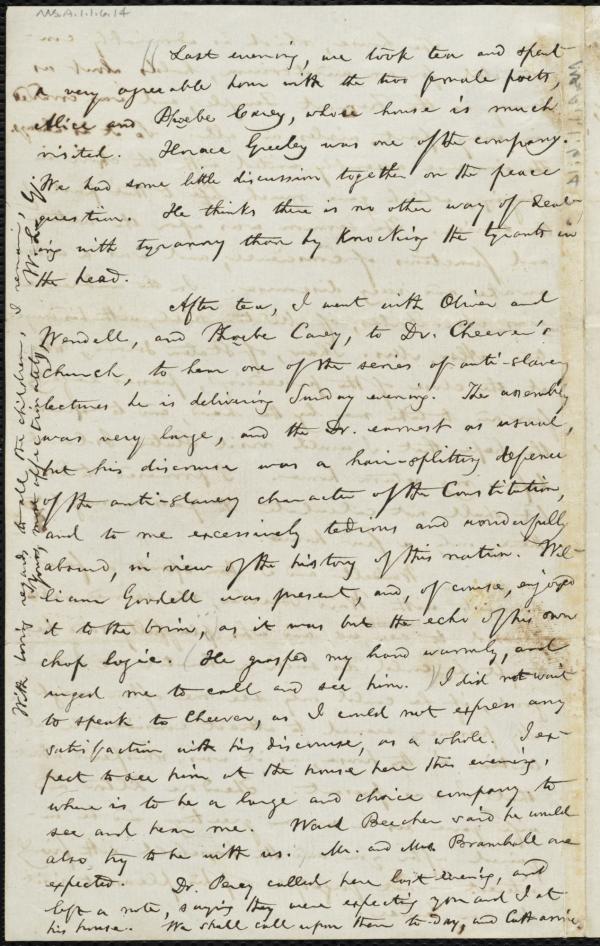 Ms.A.1.1.6.14
Last evening, we took tea and spent
a very agreeable hour with the two female poets,
Alice and Phoebe Carey, whose house is much
visited. Horace Greeley was one of the company.
We had some little discussion together on the peace
question. He thinks there is no other way of deal-
ing with tyranny than by knocking the tyrants in
the head.
After tea, I went with Oliver and
Wendell, and Phoebe Carey, to Dr. Cheever's
church, to hear one of the series of anti-slavery
lectures he is delivering Sunday evening. The assembly
was very large, and the Dr. earnest as usual,
but his discourse was a hair-splitting defence
of the anti-slavery character of the Constitution,
and to me excessively tedious and wonderfully
absurd, in view of the history of this nation. Wil-
liam Goodell was present, and, of course, enjoyed
it to the brim, as it was but the echo of his own
chop logic. (He grasped my hand warmly, and
urged me to call and see him.) I did not wait
to speak to Cheever, as I could not express any
satisfaction with his discourse, as a whole. I ex-
pect to see him at the house here this evening,
where is to be a large and choice company to
see and hear me. Ward Beecher said he would
also try to be with us. Mr. and Mrs. Bramhall are
expected. Dr. Percy called here last evening, and
left a note, saying they were expecting you and I at
his house. We shall call upon them to-day, and
With loving regards to all the children, I remain,
Yours, most affectionately,
W. L. G.